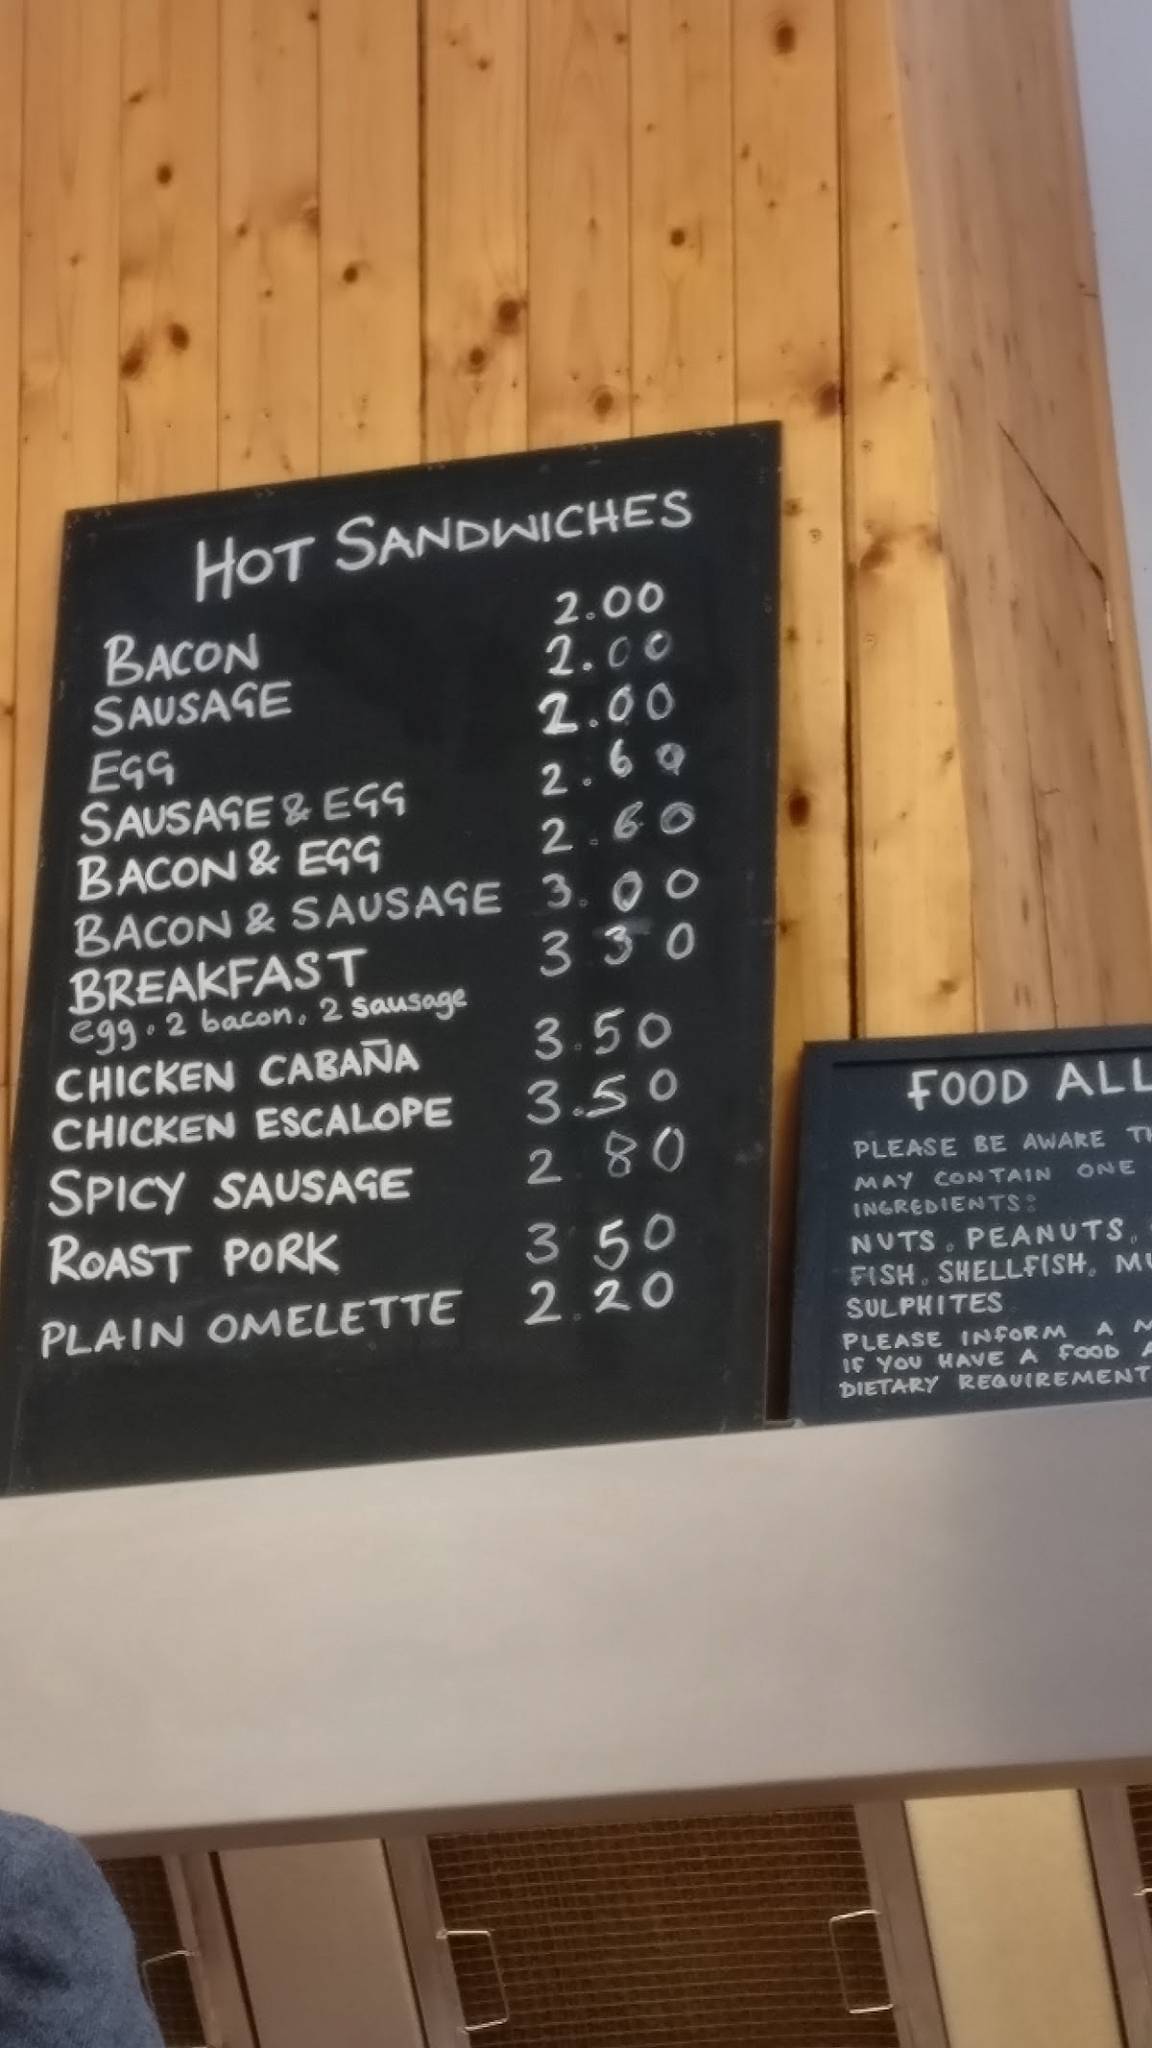 HOT SANDWICHES
BACON 2.00
SAUSAGE 2.00
EGG 2.00
SAUSAGE & EGG 2.60
BACON & EGG 2.60
BACON & SAUSAGE 3.00
BREAKFAST 3 30
egg. 2 bacon. 2 sausage
CHICKEN CABAÑA 3.50
CHICKEN ESCALOPE 3.50
SPICY SAUSAGE 2 80
ROAST PORK 3 50
PLAIN OMELETTE 2.20
FOOD ALL
PLEASE BE AWARE TH
MAY CONTAIN ONE
INGREDIENTS:
NUTS. PEANUTS.
FISH. SHELLFISH. MU
SULPHITES
PLEASE INFORM A M
IF YOU HAVE A FOOD A
DIETARY REQUIREMENT